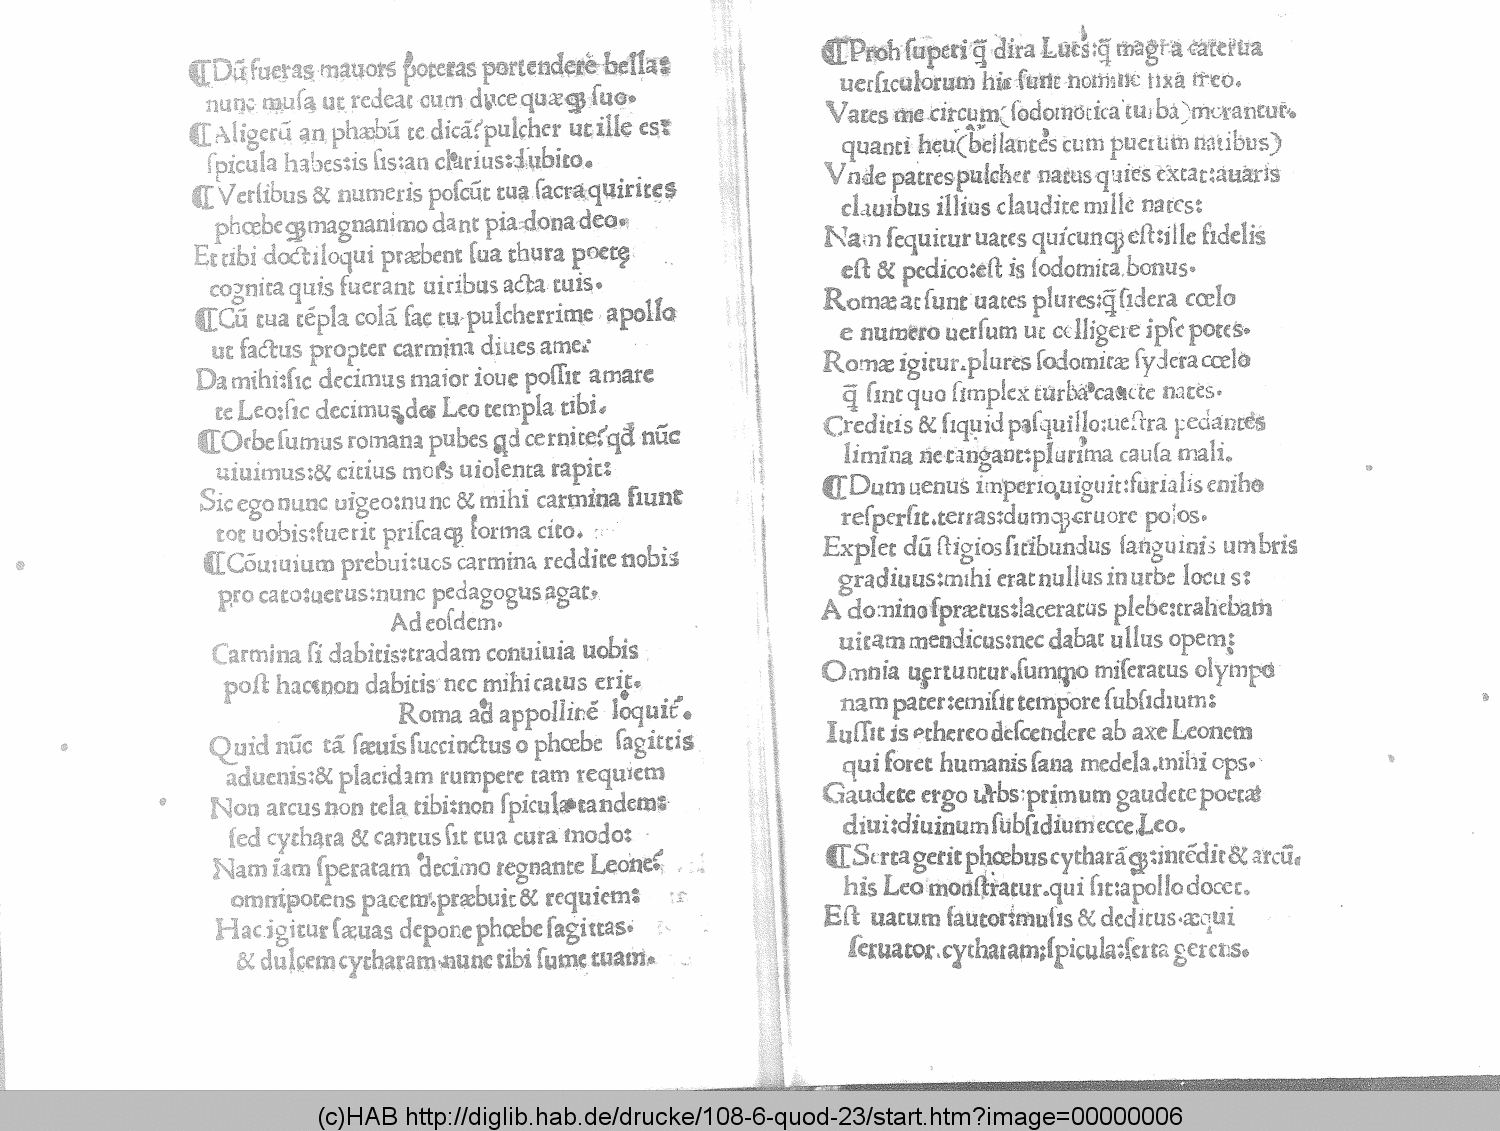 ¶Dū fueras mauors poteras portendere bella:
nunc musa ut redeat cum duce quæq; suo.
¶Aligerū an phæbū te dicā? pulcher ut ille es:
spicula habes: is sis: an clarius: dubito.
¶Versibus & numeris poscūt tua sacra quirites
phœbeq; magnanimo dant pia dona deo.
Et tibi doctiloqui præbent sua thura poetę
cognita quis fuerant uiribus acta tuis.
¶Cū tua tēpla colā fac tu pulcherrime apollo
ut factus propter carmina diues amer
Da mihi: sic decimus maior ioue possit amare
te Leo: sic decimus det Leo templa tibi.
¶Orbe sumus romana pubes qd cernite? qd nūc
uiuimus: & citius mors uiolenta rapit:
Sic ego nunc uigeo: nunc & mihi carmina fiunt
tot uobis: fuerit priscaq; forma cito.
¶Cōuiuium prebui: uos carmina reddite nobis
pro cato: uerus: nunc pedagogus agat.
Ad eosdem.
Carmina si dabitis: tradam conuiuia uobis
post hac: non dabitis nec mihi catus erit.
Roma ad appollinē loquit̃.
Quid nūc tā sæuis succinctus o phœbe sagittis
aduenis: & placidam rumpere tam requiem
Non arcus non tela tibi: non spicula tandem:
sed cythara & cantus sit tua cura modo:
Nam iam speratam decimo regnante Leone?
omnipotens pacem præbuit & requiem:
Hac igitur sæuas depone phœbe sagittas.
& dulcem cytharam nunc tibi sume tuam.
¶Proh superi q̄ dira Lues: q̄ magna caterua
uersiculorum his sunt nomine fixa meo.
Vates me circum (sodomotica turba) morantur.
quanti heu (bellantes cum puerum natibus)
Vnde patres pulcher natus quies extat: auaris
clauibus illius claudite mille nates:
Nam sequitur uates quicunq; est: ille fidelis
est & pedico: est is sodomita bonus.
Romæ at sunt uates plures: q̄ sidera cœlo
e numero uersum ut colligere ipse potes.
Romæ igitur. plures sodomitæ sydera cœlo
q̄ sint quo simplex turba caucte nates.
Creditis & siquid pasquillo: uestra pedantes
limina ne tangant: plurima causa mali.
¶Dum uenus imperio uiguit: furialis eniho
respersit. terras: dumq; cruore polos.
Explet dū stigios sitibundus sanguinis umbris
gradiuus: mihi erat nullus in urbe locus:
A domino sprætus: laceratus plebe: trahebam
uitam mendicus: nec dabat ullus opem;
Omnia uertuntur. summo miseratus olympo
nam pater: emisit tempore subsidium:
Iussit is ethereo descendere ab axe Leonem
qui foret humanis sana medela. mihi ops.
Gaudete ergo urbs: primum gaudete poetæ
diui: diuinum subsidium ecce Leo.
¶Serta gerit phœbus cytharāq;: intēdit & arcū.
his Leo monstratur. qui sit: apollo docet.
Est uatum fautor: musis & deditus. æqui
seruator. cytharam: spicula: serta gerens.
(c)HAB http://diglib.hab.de/drucke/108-6-quod-23/start.htm?image=00000006